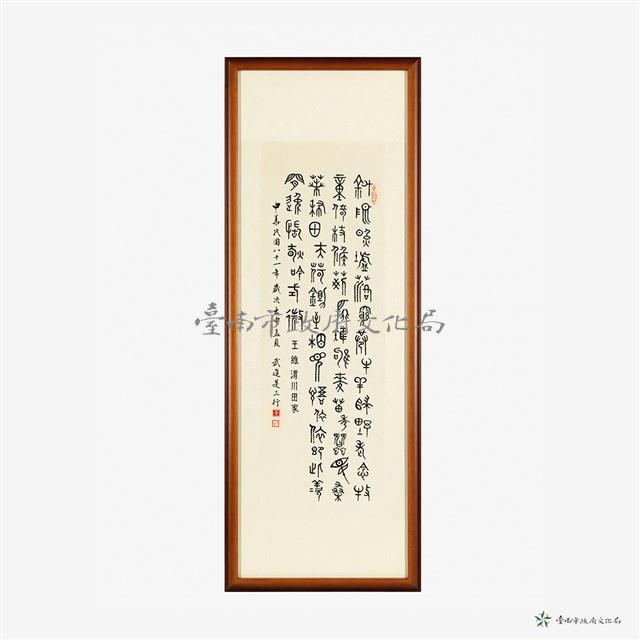 斜照墟落窮巷牛羊歸野老念牧
童倚杖候荊扉雉雊麥苗秀蠶眠桑
葉稀田夫荷鋤至相見語依依即此羨
閒逸悵然吟式微 王維渭川田家
中華民國八十一年歲次壬申五月 武進
臺南市政府文化局
臺南市政府文化局